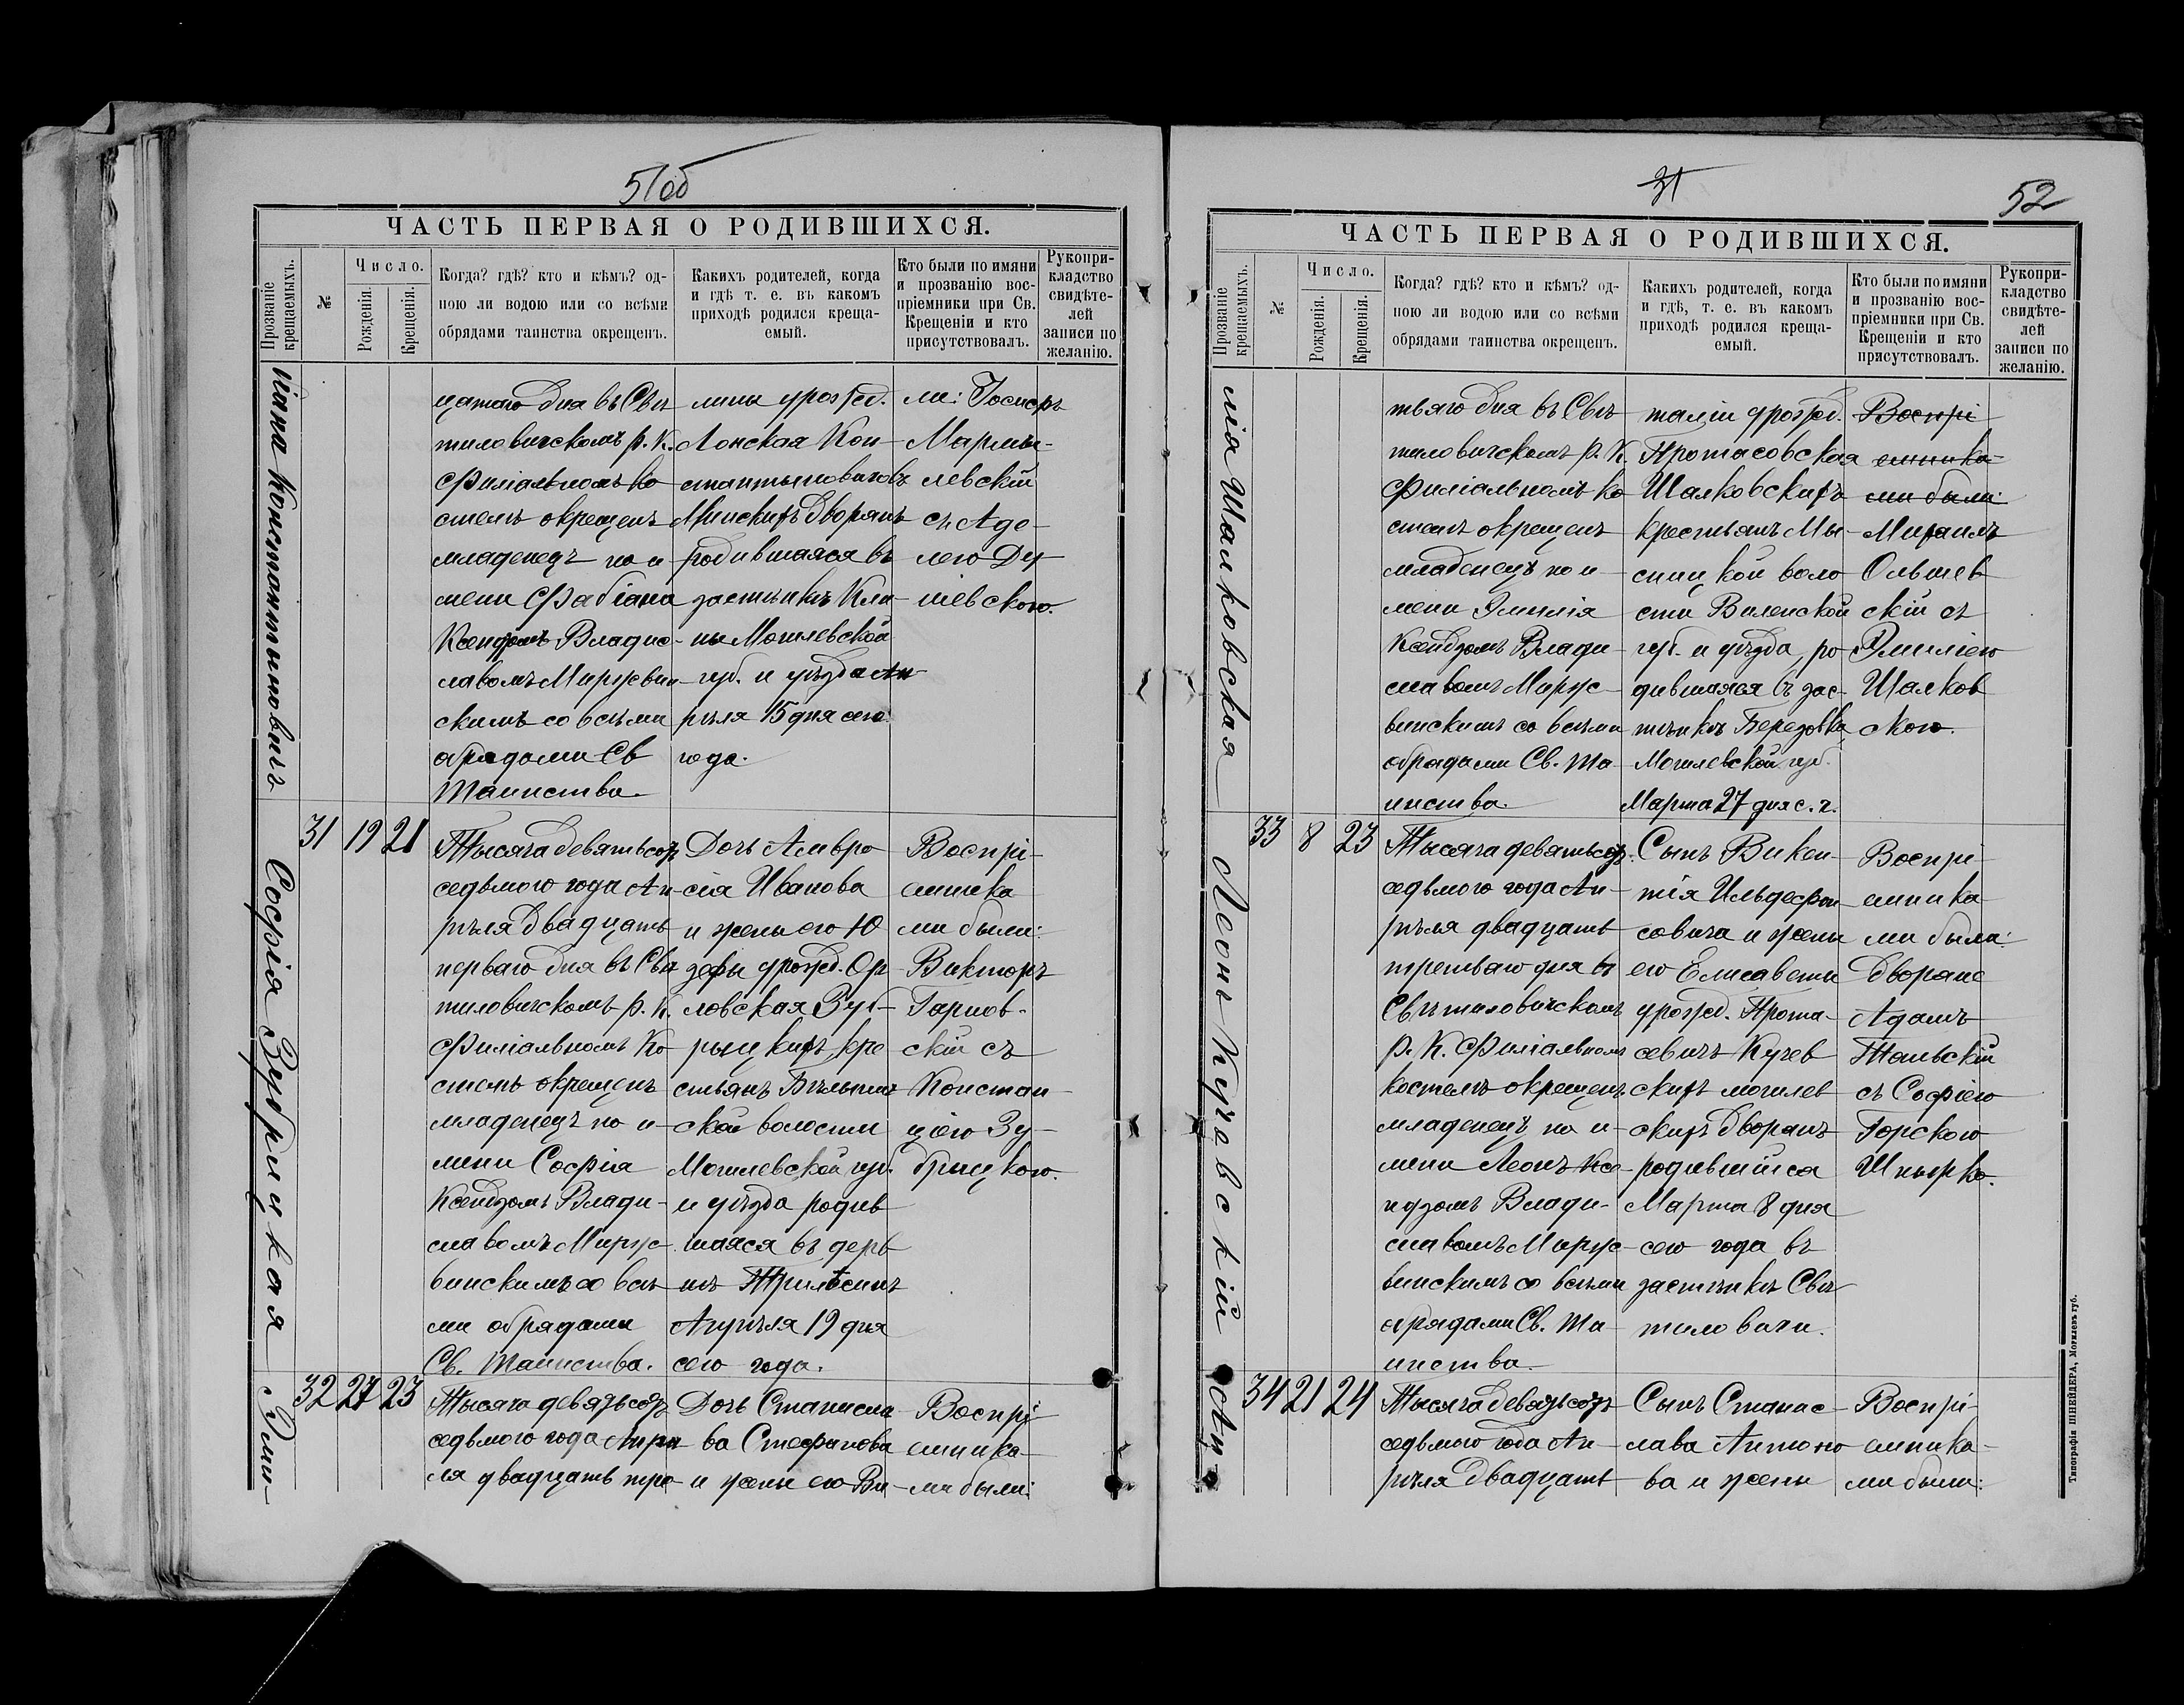 51об
ЧАСТЬ ПЕРВАЯ О РОДИВШИХСЯ.
Прозваніе крещаемыхъ.
№
Число.
Рожденія.
Крещенія.
Когда? гдѣ? кто и кѣмъ? од-
ною ли водою или со всѣми
обрядами таинства окрещенъ.
Какихъ родителей, когда
и гдѣ т. е. въ какомъ
приходѣ родился креща-
емый.
Кто были по имяни
и прозванію вос-
пріемники при Св.
Крещеніи и кто
присутствовалъ.
Рукопри-
кладство
свидѣте-
лей
записи по
желанію.
ціана Константыновичъ
цатаго дня въ Свѣ
тиловичскомъ р. К.
Филіальномъ ко
стелѣ окрещенъ
младенецъ по и
мени Фабіана
Ксендзомъ Владис-
лавомъ Мирусвин
скимъ со всѣми
обрядами Св
Таинства.
лины урожд.
Лонская Кон-
стантыновичовъ
Минскихъ дворянъ
родившаяся въ
застѣнкѣ
ны Могилевской
губ. и уѣзда Ап
рѣля 15 дня сего
года.
ли:
левскій
съ Аде-
лею Ду
шевскою.
София Зубрицкая
31 19 21
Тысяча девятьсотъ
седьмого года Ап-
рѣля двадцать
перваго дня въ Свѣ
тиловичскомъ р. К.
Филіальномъ Ко
стелѣ окрещенъ
младенецъ по и-
мени Софія
Ксендзомъ Влади-
славомъ Мирус-
винскимъ со всѣ
ми обрядами
Св. Таинства.
Дочь Амвро
сія Иванова
и жены его Ю
зефы урожд. Ор
ловская Зуб-
рыцкихъ кре
стьянъ Бѣлынич
ской волости
Могилевской губ.
и уѣзда родив
шаяся въ дерев
нѣ Трилѣсинѣ
Апрѣля 19 дня
сего года.
Воспрі-
емника
ми были:
Викторъ
Гарнов-
скій съ
Констан-
ціею Зу-
брицкою.
Эми-
32 27 23
Тысяча девятьсотъ
седьмого года Апрѣ
ля двадцать тре-
Дочь Станисла
ва Стефанова
и жены его Ви-
Воспрі-
емника-
ми были:
31
52
ЧАСТЬ ПЕРВАЯ О РОДИВШИХСЯ.
Прозваніе крещаемыхъ.
№
Число.
Рожденія.
Крещенія.
Когда? гдѣ? кто и кѣмъ? од-
ною ли водою или со всѣми
обрядами таинства окрещенъ.
Какихъ родителей, когда
и гдѣ, т. е. въ какомъ
приходѣ родился креща-
емый.
Кто были по имяни
и прозванію вос-
пріемники при Св.
Крещеніи и кто
присутствовалъ.
Рукопри-
кладство
свидѣте-
лей
записи по
желанію.
лія Шалковская
тьяго дня въ Свѣ
тиловичскомъ р. К.
Филіальномъ ко
стелѣ окрещенъ
младенецъ по и-
мени Эмилія
Ксендзомъ Влади-
славомъ Мирус-
винскимъ со всѣми
обрядами Св. Та-
инства.
таліи урожд.
Протасовская
Шалковскихъ
крестьянъ Мы-
сницкой воло
сти Виленской
губ. и уѣзда, ро-
дившаяся въ зас-
тѣнкѣ Березовка
Могилевской губ.
Марта 27 дня с. г.
Воспрі
емника-
ми были:
Михаилъ
Ольшев
скій съ
Эмиліею
Шалков
скою.
Леонъ Кучевскій
33 8 23
Тысяча девятьсотъ
седьмого года Ап-
рѣля двадцать
третьяго дня въ
Свѣтиловичскомъ
р. К. Филіальномъ
костелѣ окрещенъ
младенецъ по и-
мени Леонъ Ксе-
ндзомъ Влади-
славомъ Мирус-
винскимъ со всѣми
обрядами Св. Та-
инства.
Сынъ Викен-
тія Ильдефон
совича и жены
его Елисаветы
урожд. Прота-
севичъ Кучев
скихъ могилев
скихъ дворянъ
родившійся
Марта 8 дня
сего года въ
застѣнкѣ Свѣ
тиловичи.
Воспрі-
емника-
ми были:
дворяне
Адамъ
съ Софіею
Горскою
Шпырко.
Ан-
34 21 24
Тысяча девятьсотъ
седьмого года Ап-
рѣля двадцать
Сынъ Станис-
лава Антоно
ва и жены
Воспрі-
емника-
ми были:
Типографія ШНЕЙДЕРА, Могилевъ губ.